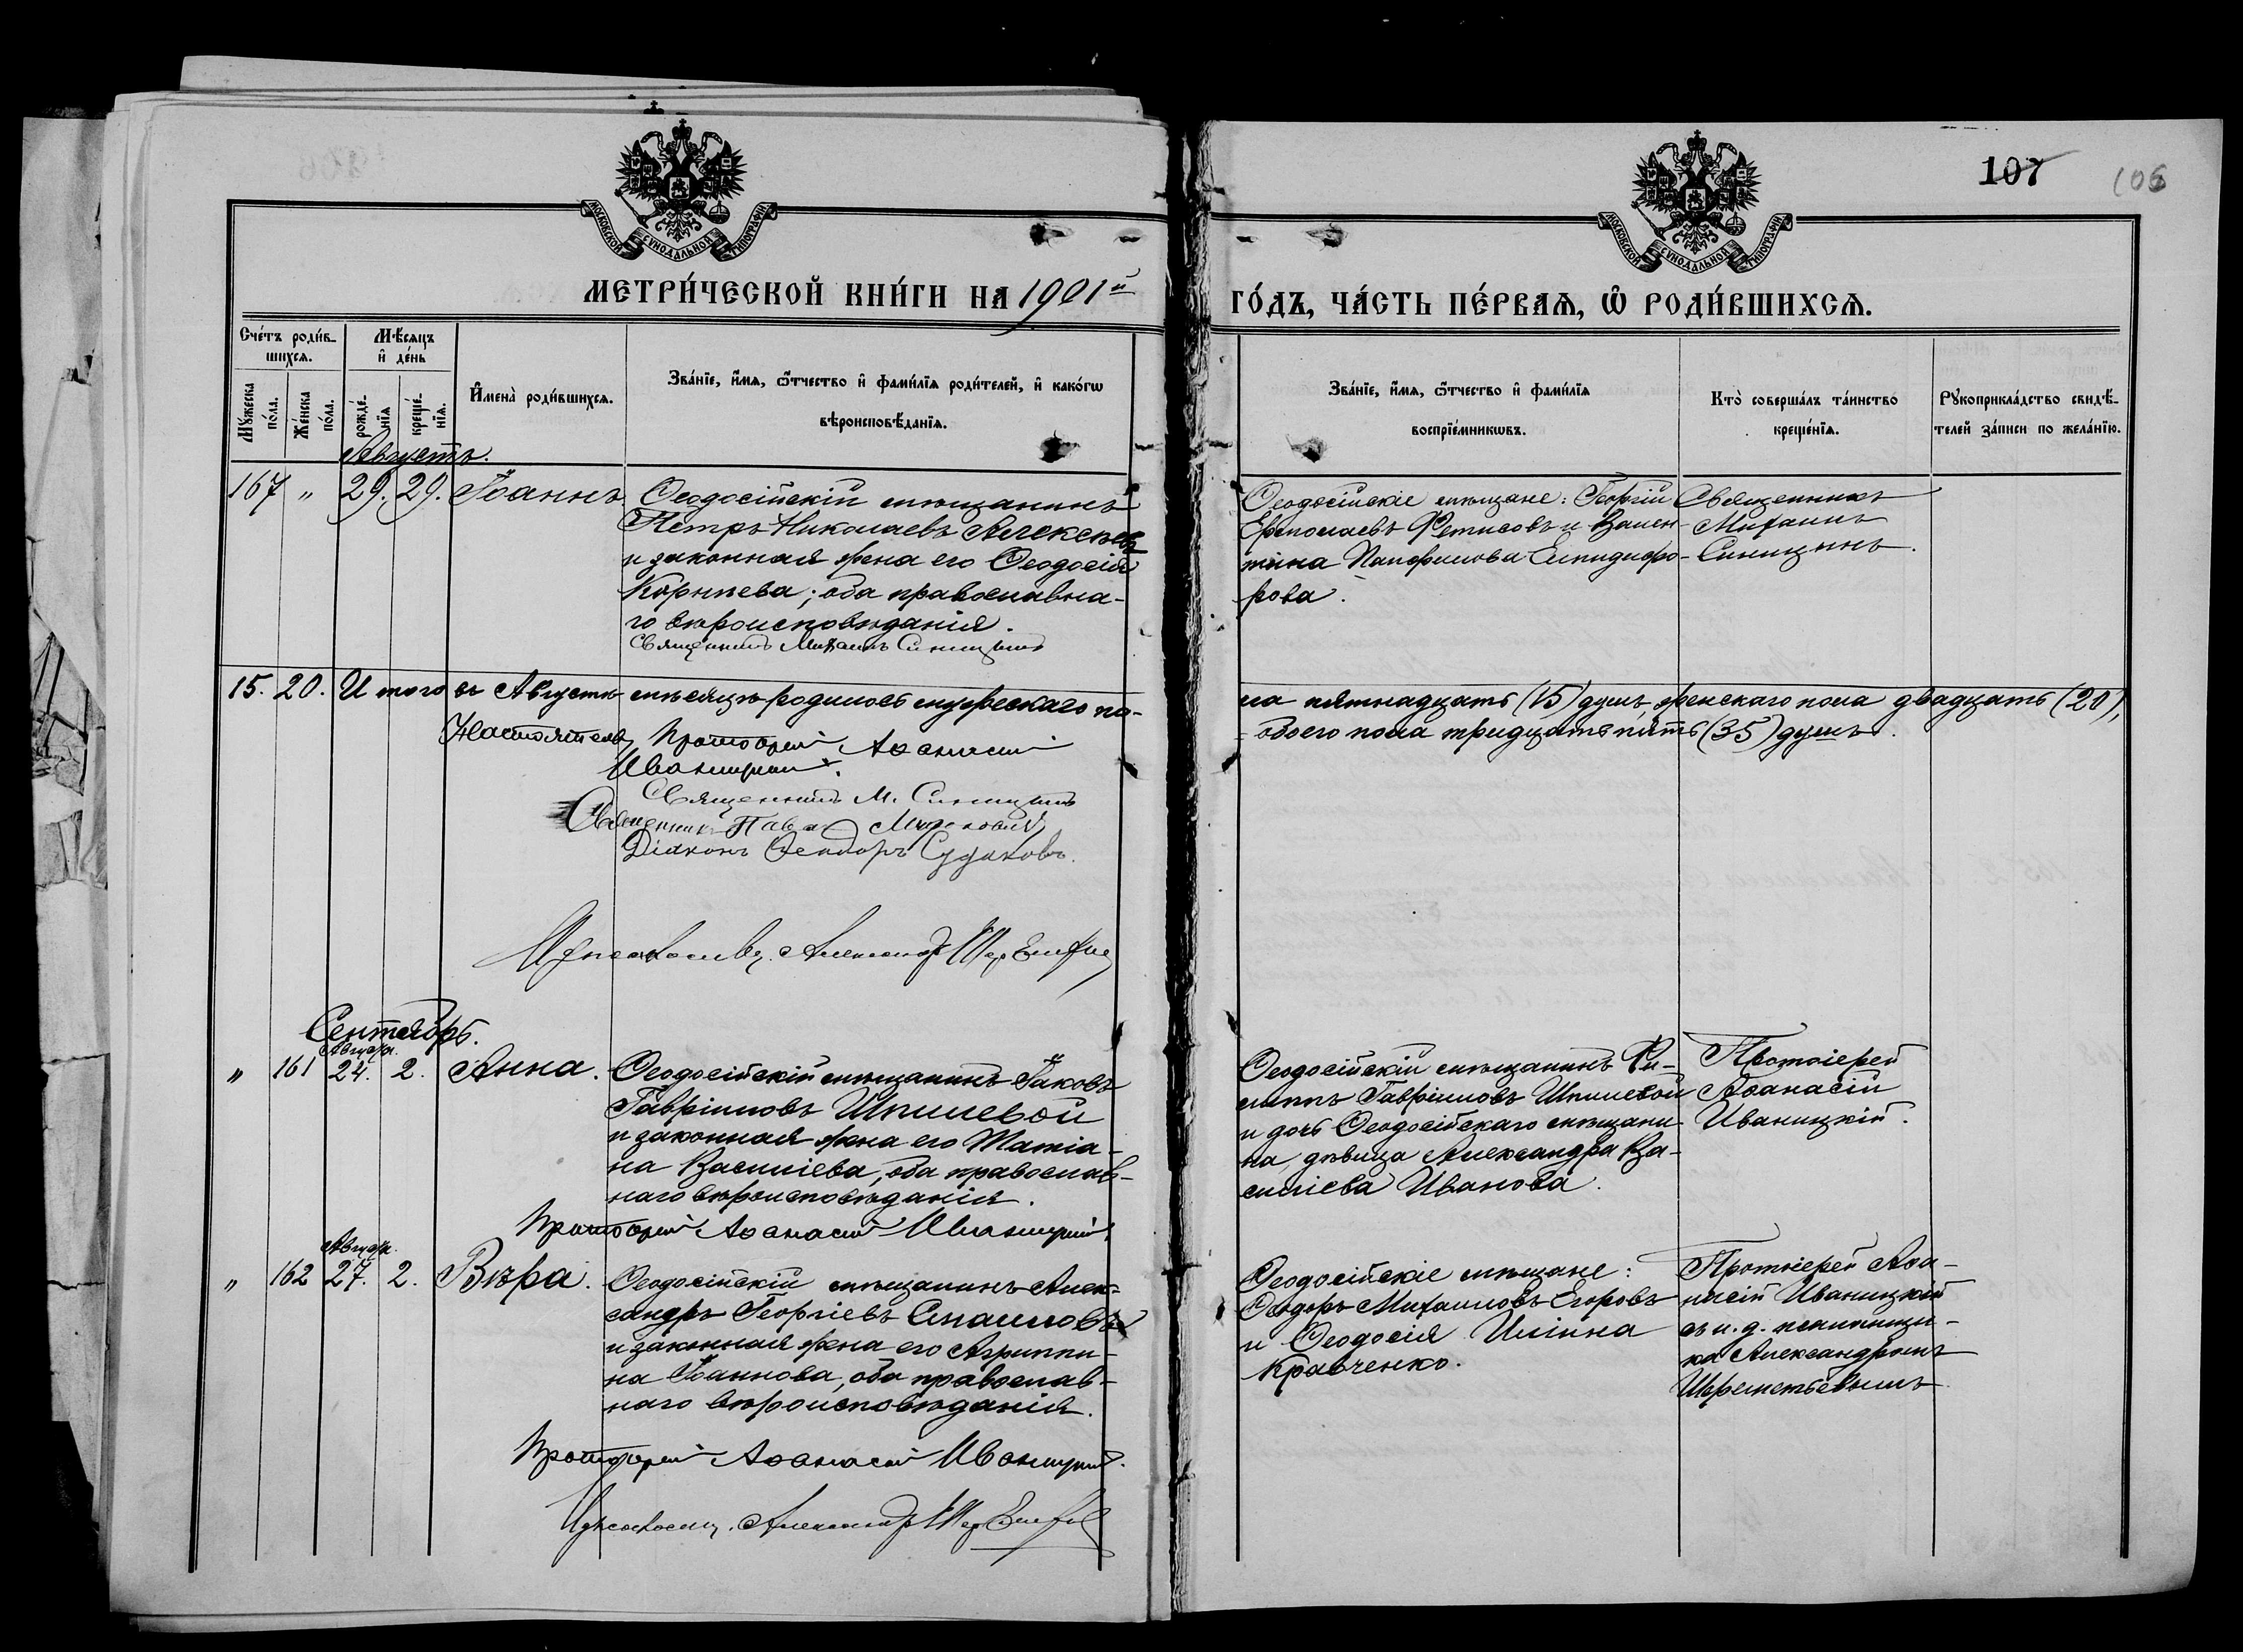 107
106
МОСКОВСКОЙ СѴНОДАЛЬНОЙ ТИПОГРАФІИ
МОСКОВСКОЙ СѴНОДАЛЬНОЙ ТИПОГРАФІИ
МЕТРИ́ЧЕСКОЙ КНИ́ГИ НА 1901й
ГО́ДЪ, ЧА́СТЬ ПЕ́РВАѦ, Ѡ РОДИ́ВШИХСѦ.
Сче́тъ роди́в-
шихсѧ.
Мꙋ́жеска
по́ла.
Же́нска
по́ла.
Мѣ́сѧцъ
и҆ де́нь
рожде́-
нїѧ
креще́-
нїѧ.
И҆мена̀ роди́вшихсѧ.
Зва́нїе, и҆́мѧ, ѻ҆́тчество и҆ фами́лїѧ роди́телей, и҆ како́гѡ
вѣроисповѣ́данїѧ.
Зва́нїе, и҆́мѧ, ѻ҆́тчество и҆ фами́лїѧ
воспрїе́мникѡвъ.
Кто̀ соверша́лъ та́инство
креще́нїѧ.
Рꙋкоприкла́дство свидѣ́-
телей за́писи по жела́нїю.
Августъ.
167 " 29. 29. Іоаннъ.
Ѳеодосійскій мѣщанинъ
Петръ Николаевъ Алексѣевъ
и законная жена его Ѳеодосія
Корнѣева; оба православна-
го вѣроисповѣданія.
Священникъ Михаилъ Синицынъ
Ѳеодосійскіе мѣщане: Георгій
Ермолаевъ Фетисовъ и Вален-
тина Панфилова Елпидифо-
рова.
Священникъ
Михаилъ
Синицынъ.
15. 20. Итого въ Августѣ мѣсяцѣ родилось мужескаго по-
ла пятнадцать (15) душъ, женскаго пола двадцать (20),
обоего пола тридцать пять (35) душъ.
Настоятель, Протоіерей Аѳанасій
Иваницкій.
Священникъ М. Синицынъ
Священникъ Павелъ
Діаконъ Ѳеодоръ Судаковъ.
Александръ
Сентябрь.
Августа.
" 161 24. 2. Анна.
Ѳеодосійскій мѣщанинъ Іаковъ
Гавріиловъ Шпилевой
и законная жена его Татіа-
на Василіева, оба православ-
наго вѣроисповѣданія.
Протоіерей Аѳанасій Иваницкій.
Ѳеодосійскій мѣщанинъ Фи-
липпъ Гавріиловъ Шпилевой
и дочь Ѳеодосійскаго мѣщани-
на, дѣвица Александра Ва-
силіева Иванова.
Протоіерей
Аѳанасій
Иваницкій.
Августа.
" 162 27. 2. Вѣра.
Ѳеодосійскій мѣщанинъ Алек-
сандръ Георгіевъ
и законная жена его Агриппи-
на Іоаннова, оба православ-
наго вѣроисповѣданія.
Протоіерей Аѳанасій Иваницкій.
Александръ
Ѳеодосійскіе мѣщане:
Ѳеодоръ Михаиловъ Егоровъ
и Ѳеодосія Иліина
Кравченко.
Протоіерей Аѳа-
насій Иваницкій
съ и. д. псаломщи-
ка Александромъ
Шереметьевымъ